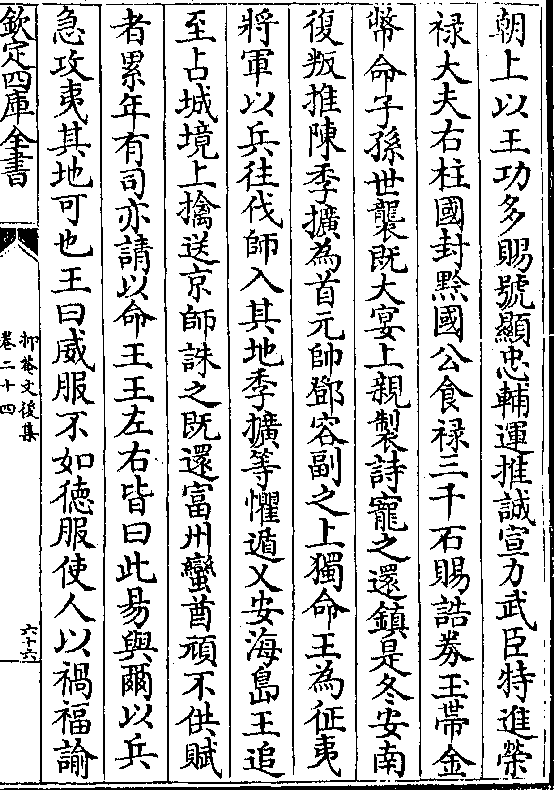 朝上以王功多賜號顯忠輔運推誠宣力武臣特進榮
禄大夫右柱國封黔國公食禄三千石賜誥券玉帶金
幣命子孫世襲既大宴上親製詩寵之還鎮是冬安南
復叛推陳季擴為首元帥鄧容副之上獨命王為征夷
將軍以兵往伐師入其地季擴等懼遁乂安海島王追
至占城境上擒送京師誅之既還富州蠻酋頑不供賦
者累年有司亦請以命王王左右皆曰此易與爾以兵
急攻夷其地可也王曰威服不如徳服使人以禍福諭
欽定四庫全書
抑菴文後集
卷二十四
六十六